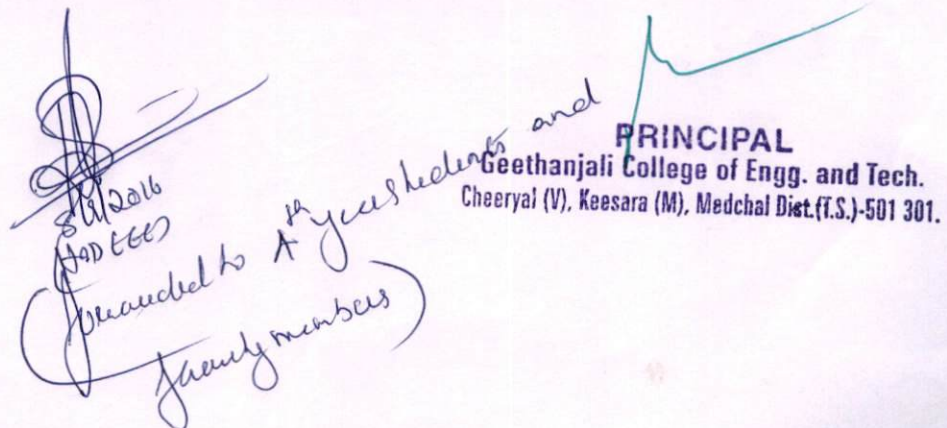 8/11/2016
(HOD EEE)
(forwarded to 4th year students and
faculty members)
PRINCIPAL
Geethanjali College of Engg. and Tech.
Cheeryal (V), Keesara (M), Medchal Dist.(T.S.)-501 301.